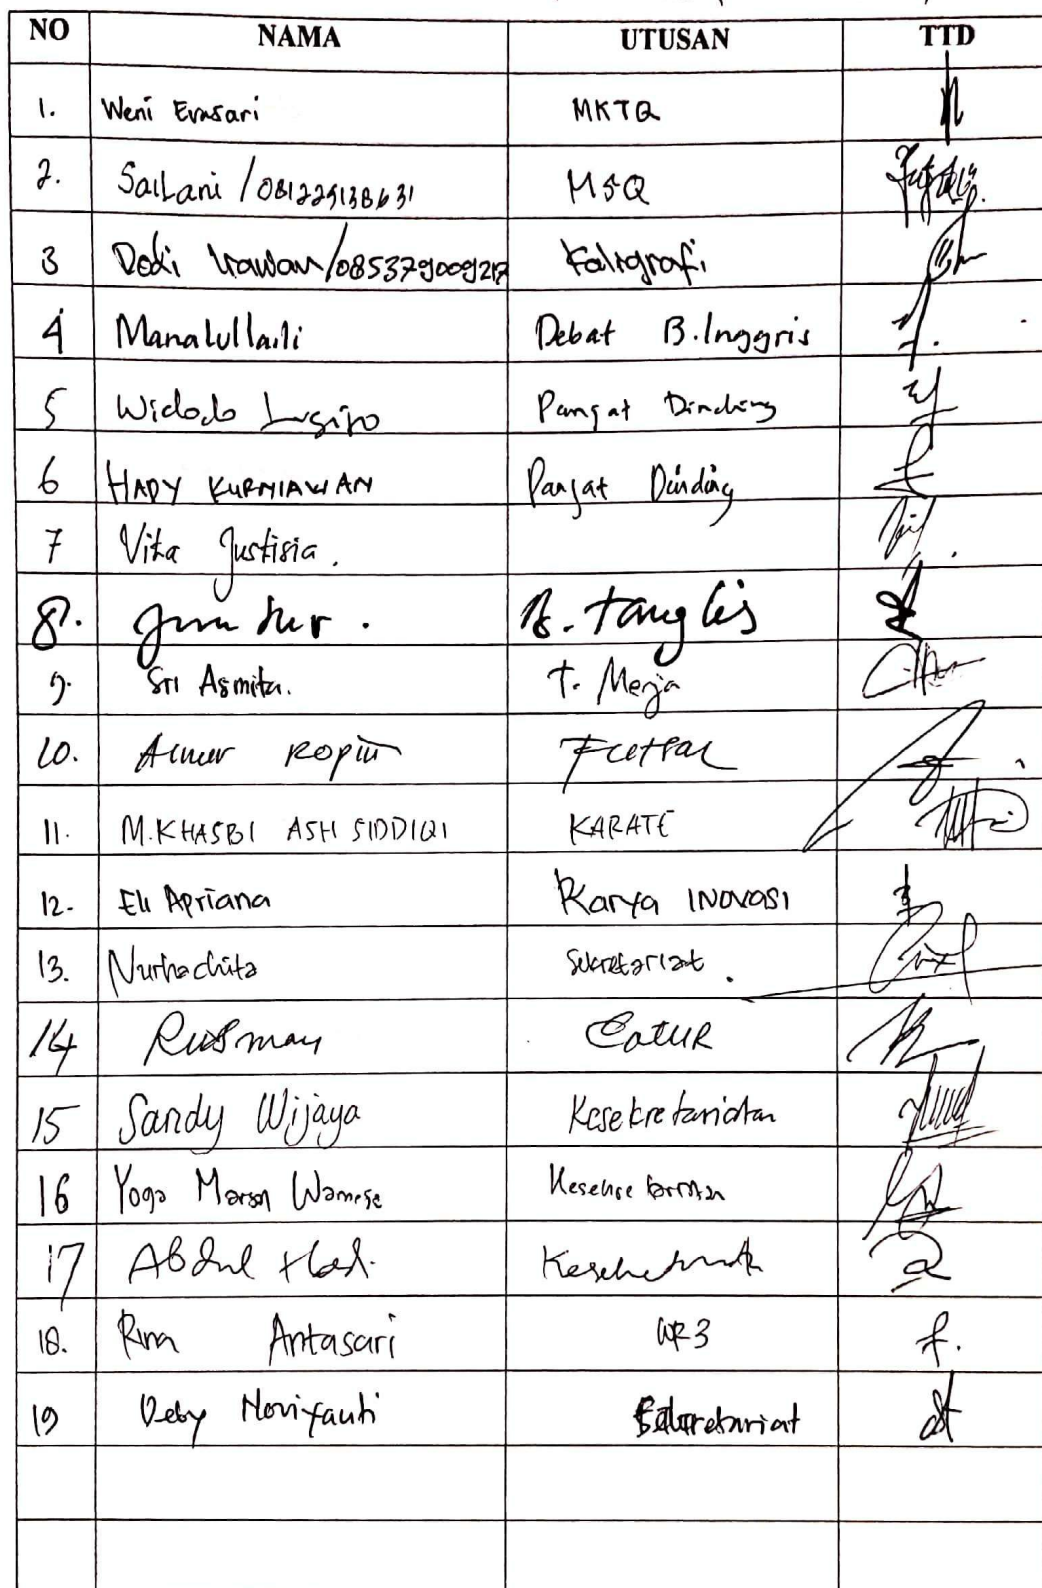 NO NAMA UTUSAN TTD
1. Weni Evasari MKTQ
2. Sailani / 081225138631 MSQ
3 Dedi Irawan / 085379009217 Kaligrafi
4 Manalullaili Debat B.Inggris
5 Widodo Panjat Dinding
6 HADY KURNIAWAN Panjat Dinding
7 Vita Justisia.
8. B. tangkis
9. Sri Asmita. T. Meja
10. Futsal
11. M.KHASBI ASH SIDDIQI KARATE
12. Eli Apriana Karya INOVASI
13. Nurhachita Sekretariat.
14 Rusman CatUR
15 Sandy Wijaya Kesekretariatan
16 Yoga
17 Abdul Hadi.
18. Rina Antasari WR3
19 Deby Noviyanti Sekretariat